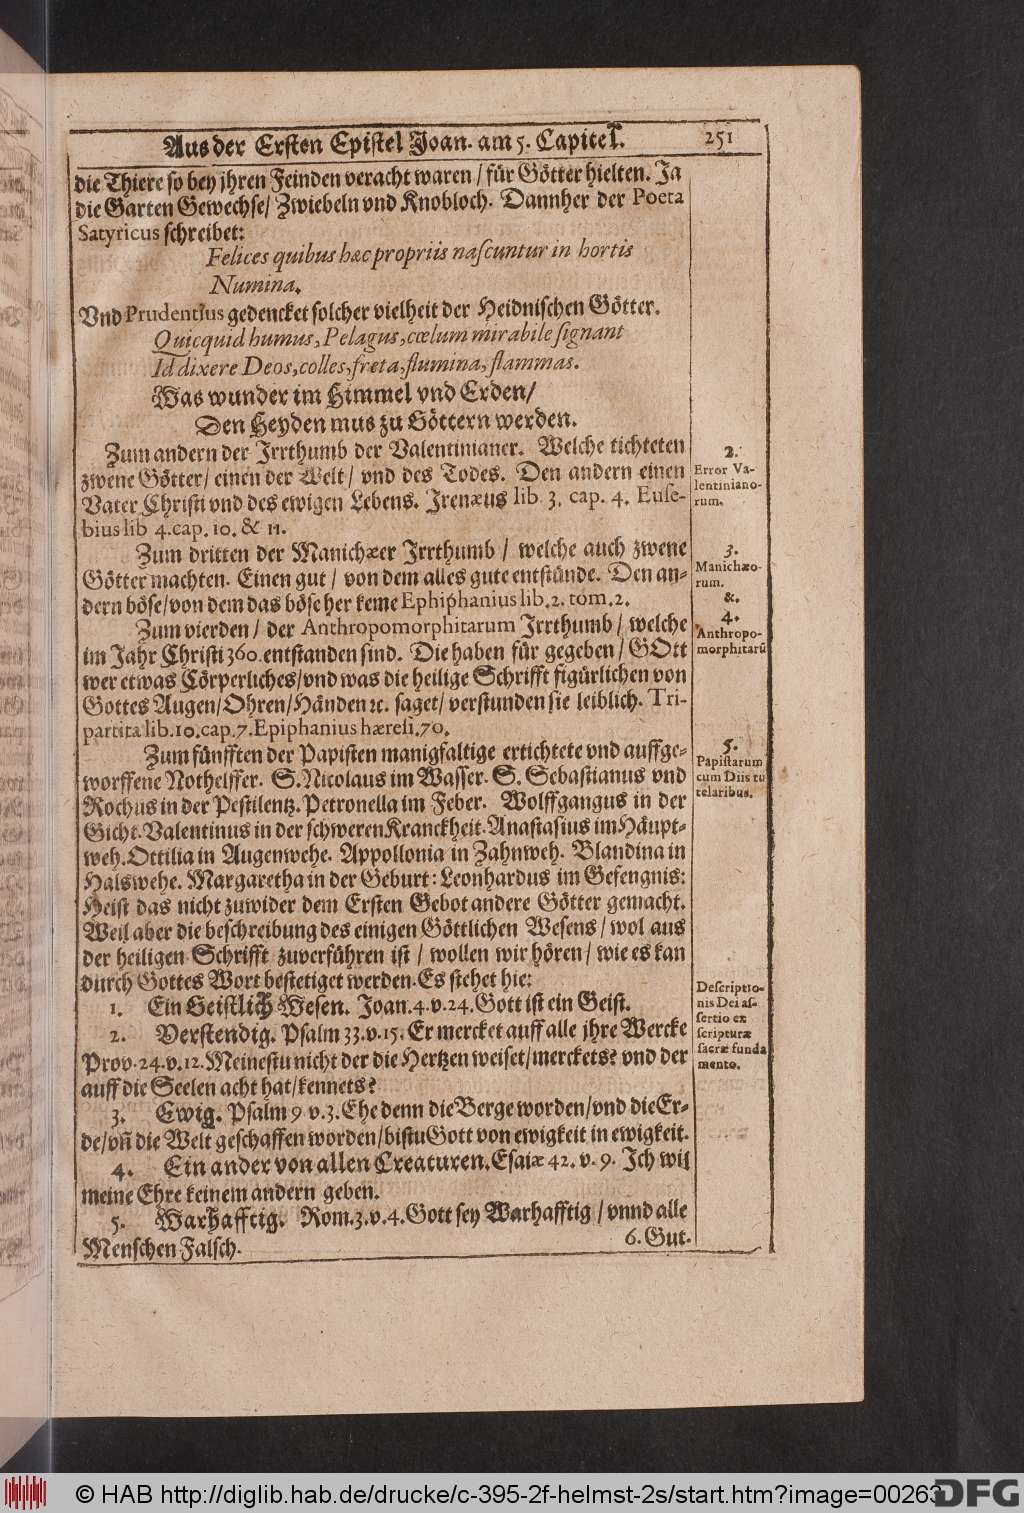 Aus der Ersten Epistel Joan. am 5. Capitel.
251
die Thiere so bey jhren Feinden veracht waren / für Götter hielten. Ja
die Garten Gewechse / Zwiebeln vnd Knobloch. Dannher der Poeta
Satyricus schreibet:
Felices quibus hæc propriis naſcuntur in hortis
Numina.
Vnd Prudentius gedencket solcher vielheit der Heidnischen Götter.
Quicquid humus, Pelagus, cœlum mirabile ſignant
Id dixere Deos, colles, freta, flumina, flammas.
Was wunder im Himmel vnd Erden /
Den Heyden mus zu Göttern werden.
Zum andern der Jrrthumb der Valentinianer. Welche tichteten
zwene Götter / einen der Welt / vnd des Todes. Den andern einen
Vater Christi vnd des ewigen Lebens. Jrenæus lib. 3. cap. 4. Euſe-
bius lib 4. cap. 10. & 11.
Zum dritten der Manichæer Jrrthumb / welche auch zwene
Götter machten. Einen gut / von dem alles gute entstünde. Den an-
dern böse / von dem das böse her keme Ephiphanius lib. 2. tom. 2.
Zum vierden / der Anthropomorphitarum Jrrthumb / welche
im Jahr Christi 360. entstanden sind. Die haben für gegeben / GOtt
wer etwas Cörperliches / vnd was die heilige Schrifft figürlichen von
Gottes Augen / Ohren / Händen ꝛc. saget / verstunden sie leiblich. Tri-
partita lib. 10. cap. 7. Epiphanius hæreſi. 70.
Zum fünfften der Papisten manigfaltige ertichtete vnd auffge-
worffene Nothelffer. S. Nicolaus im Wasser. S. Sebastianus vnd
Rochus in der Pestilentz. Petronella im Feber. Wolffgangus in der
Gicht. Valentinus in der schweren Kranckheit. Anastasius im Häupt-
weh. Ottilia in Augenwehe. Appollonia in Zahnweh. Blandina in
Halswehe. Margaretha in der Geburt: Leonhardus im Gefengnis:
Heist das nicht zuwider dem Ersten Gebot andere Götter gemacht.
Weil aber die beschreibung des einigen Göttlichen Wesens / wol aus
der heiligen Schrifft zuverführen ist / wollen wir hören / wie es kan
durch Gottes Wort bestetiget werden. Es stehet hie:
1. Ein Geistlich Wesen. Joan. 4. v. 24. Gott ist ein Geist.
2. Verstendig. Psalm 33. v. 15. Er mercket auff alle jhre Wercke
Prov. 24. v. 12. Meinestu nicht der die Hertzen weiset / merckets? vnd der
auff die Seelen acht hat / kennets?
3. Ewig. Psalm 9 v. 3. Ehe denn die Berge worden / vnd die Er-
de / vñ die Welt geschaffen worden / bistu Gott von ewigkeit in ewigkeit.
4. Ein ander von allen Creaturen. Esaiæ 42. v. 9. Jch wil
meine Ehre keinem andern geben.
5. Warhafftig. Rom. 3. v. 4. Gott sey Warhafftig / vnnd alle
Menschen Falsch.
6. Gut.
2.
Error Va-
lentiniano-
rum.
3.
Manichæo-
rum.
&.
4.
Anthropo-
morphitarũ
5.
Papiſtarum
cum Diis tu
telaribus.
Deſcriptio-
nis Dei aſ-
ſertio ex
ſcripturæ
ſacræ funda
mento.
© HAB http://diglib.hab.de/drucke/c-395-2f-helmst-2s/start.htm?image=00263
DFG